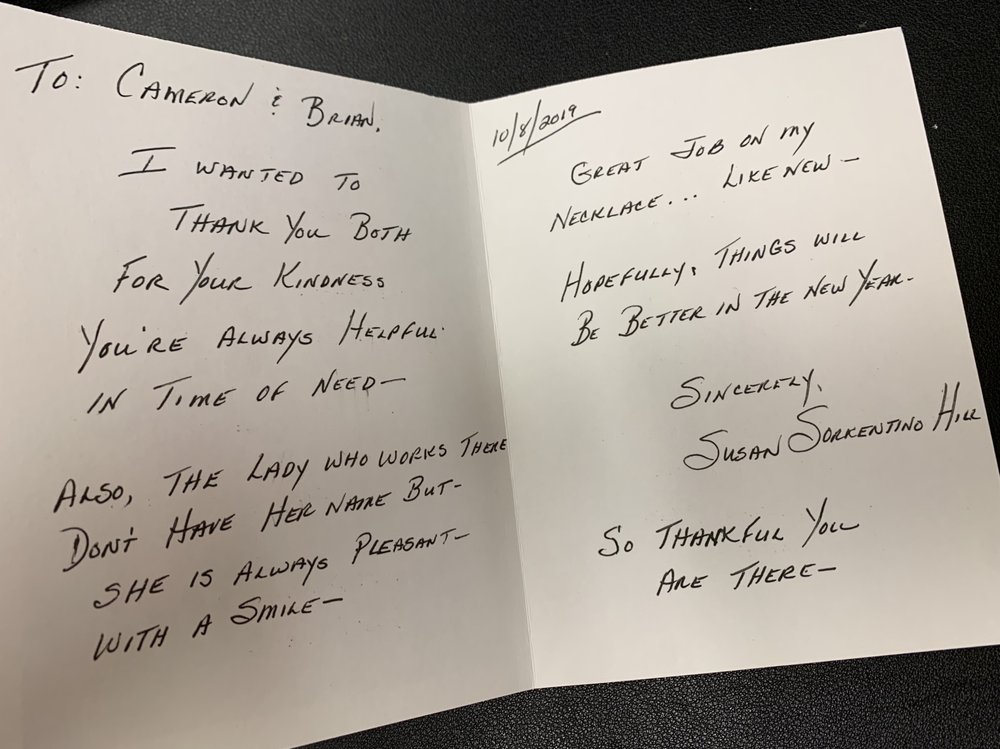 To: Cameron & Brian,
I wanted to
Thank You Both
For Your Kindness
You're Always Helpful
in Time of Need—
Also, the Lady who works there
Don't Have Her Name But-
she is Always Pleasant-
with a Smile—
10/8/2019
Great Job on my
Necklace... Like New—
Hopefully, Things will
Be Better in the New Year.
Sincerely,
Susan Sorkentino Hill
So Thankful You
Are There—